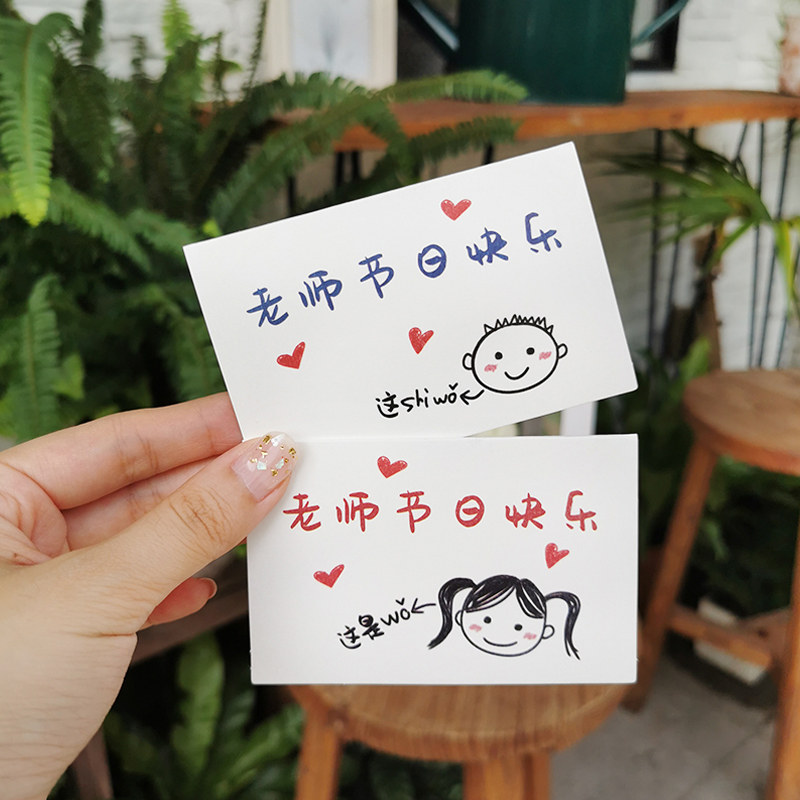 老师节日快乐
这shiwǒ
老师节日快乐
这是wǒ